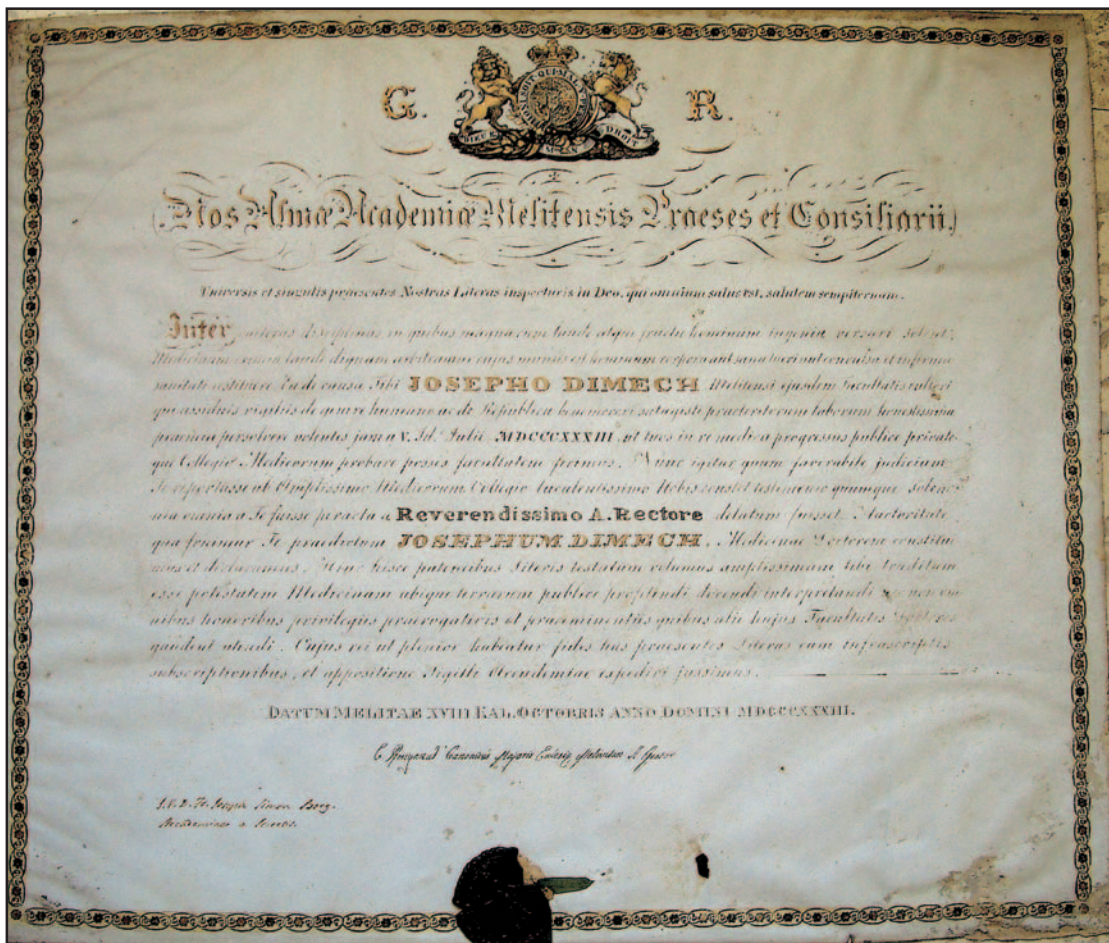 G. R.
HONI SOIT QUI MAL Y PENSE
DIEU ET MON DROIT
Nos Almæ Academiæ Melitensis Praeses et Consiliarii.
Universis et singulis praesentes Nostras Literas inspecturis in Deo, qui omnium salus est, salutem sempiternam.
Inter caeteras disciplinas in quibus magna cum laude atque fructu hominum ingenia versari solent,
Medicinam omni laude dignam arbitramur cujus munus est hominum corpora aut sana tueri aut convulsa et infirma
sanitati restituere. Ea de causa Tibi JOSEPHO DIMECH Melitensi ejusdem Facultatis cultori
qui assiduis vigiliis de genere humano ac de Republica benemereri satagisti praeteritorum laborum honestissima
praemia persolvere volentes jam a V. Id. Julii MDCCCXXXIII, ut tuos in re medica progressus publice private
que Collegio Medicorum probare posses facultatem fecimus. Nunc igitur quum favorabile judicium
Te reportasse ab Amplissimo Medicorum Collegio luculentissimo Nobis constet testimonio quumque solem
nia omnia a Te fuisse peracta a Reverendissimo A. Rectore delatum fuisset Auctoritate
qua fruimur Te praedictum JOSEPHUM DIMECH, Medicinae Doctorem constitui
mus et declaramus. Atque hisce patentibus Literis testatum volumus amplissimam tibi traditam
esse potestatem Medicinam ubique terrarum publice profitendi docendi interpretandi nec non om
nibus honoribus privilegiis praerogativis et praeeminentiis quibus alii hujus Facultatis Doctores
gaudent utendi. Cujus rei ut plenior habeatur fides has praesentes Literas cum infrascriptis
subscriptionibus, et appositione Sigilli Academiae expediri jussimus.
DATUM MELITAE XVIII KAL. OCTOBRIS ANNO DOMINI MDCCCXXXIII.
Canonicus Majoris
Joseph Simon Borg.
Academiae a Secretis.